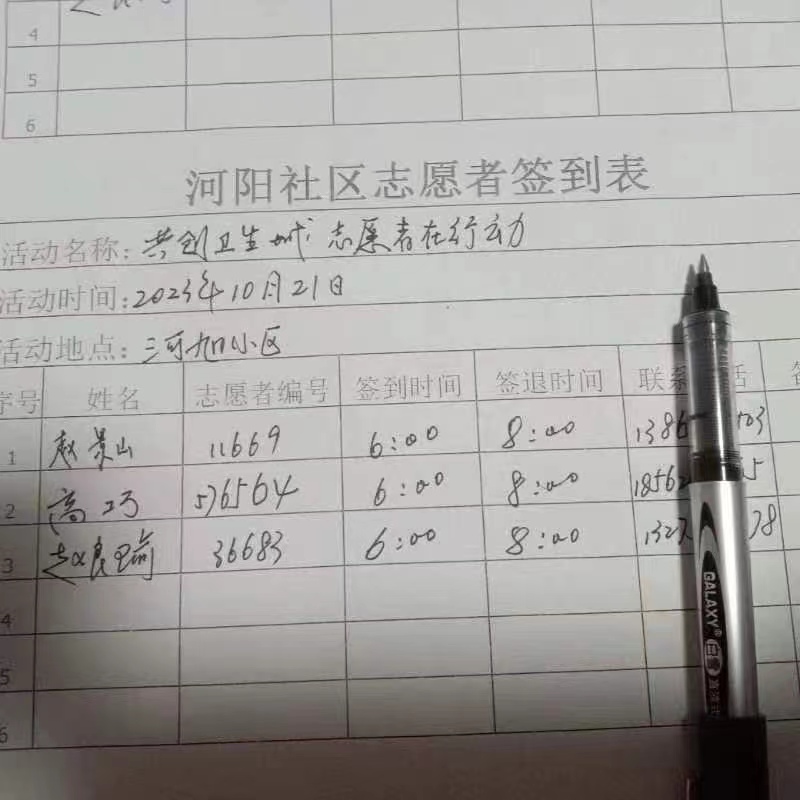 4
5
6
河阳社区志愿者签到表
活动名称：共创卫生城 志愿者在行动
活动时间：2023年10月21日
活动地点：三可旭小区
序号 姓名 志愿者编号 签到时间 签退时间 联系 话
1 赵景山 11669 6:00 8:00 1386 03
2 高巧 576564 6:00 8:00 1856 5
3 赵良瑜 36683 6:00 8:00 132 78
4
5
6
GALAXY®